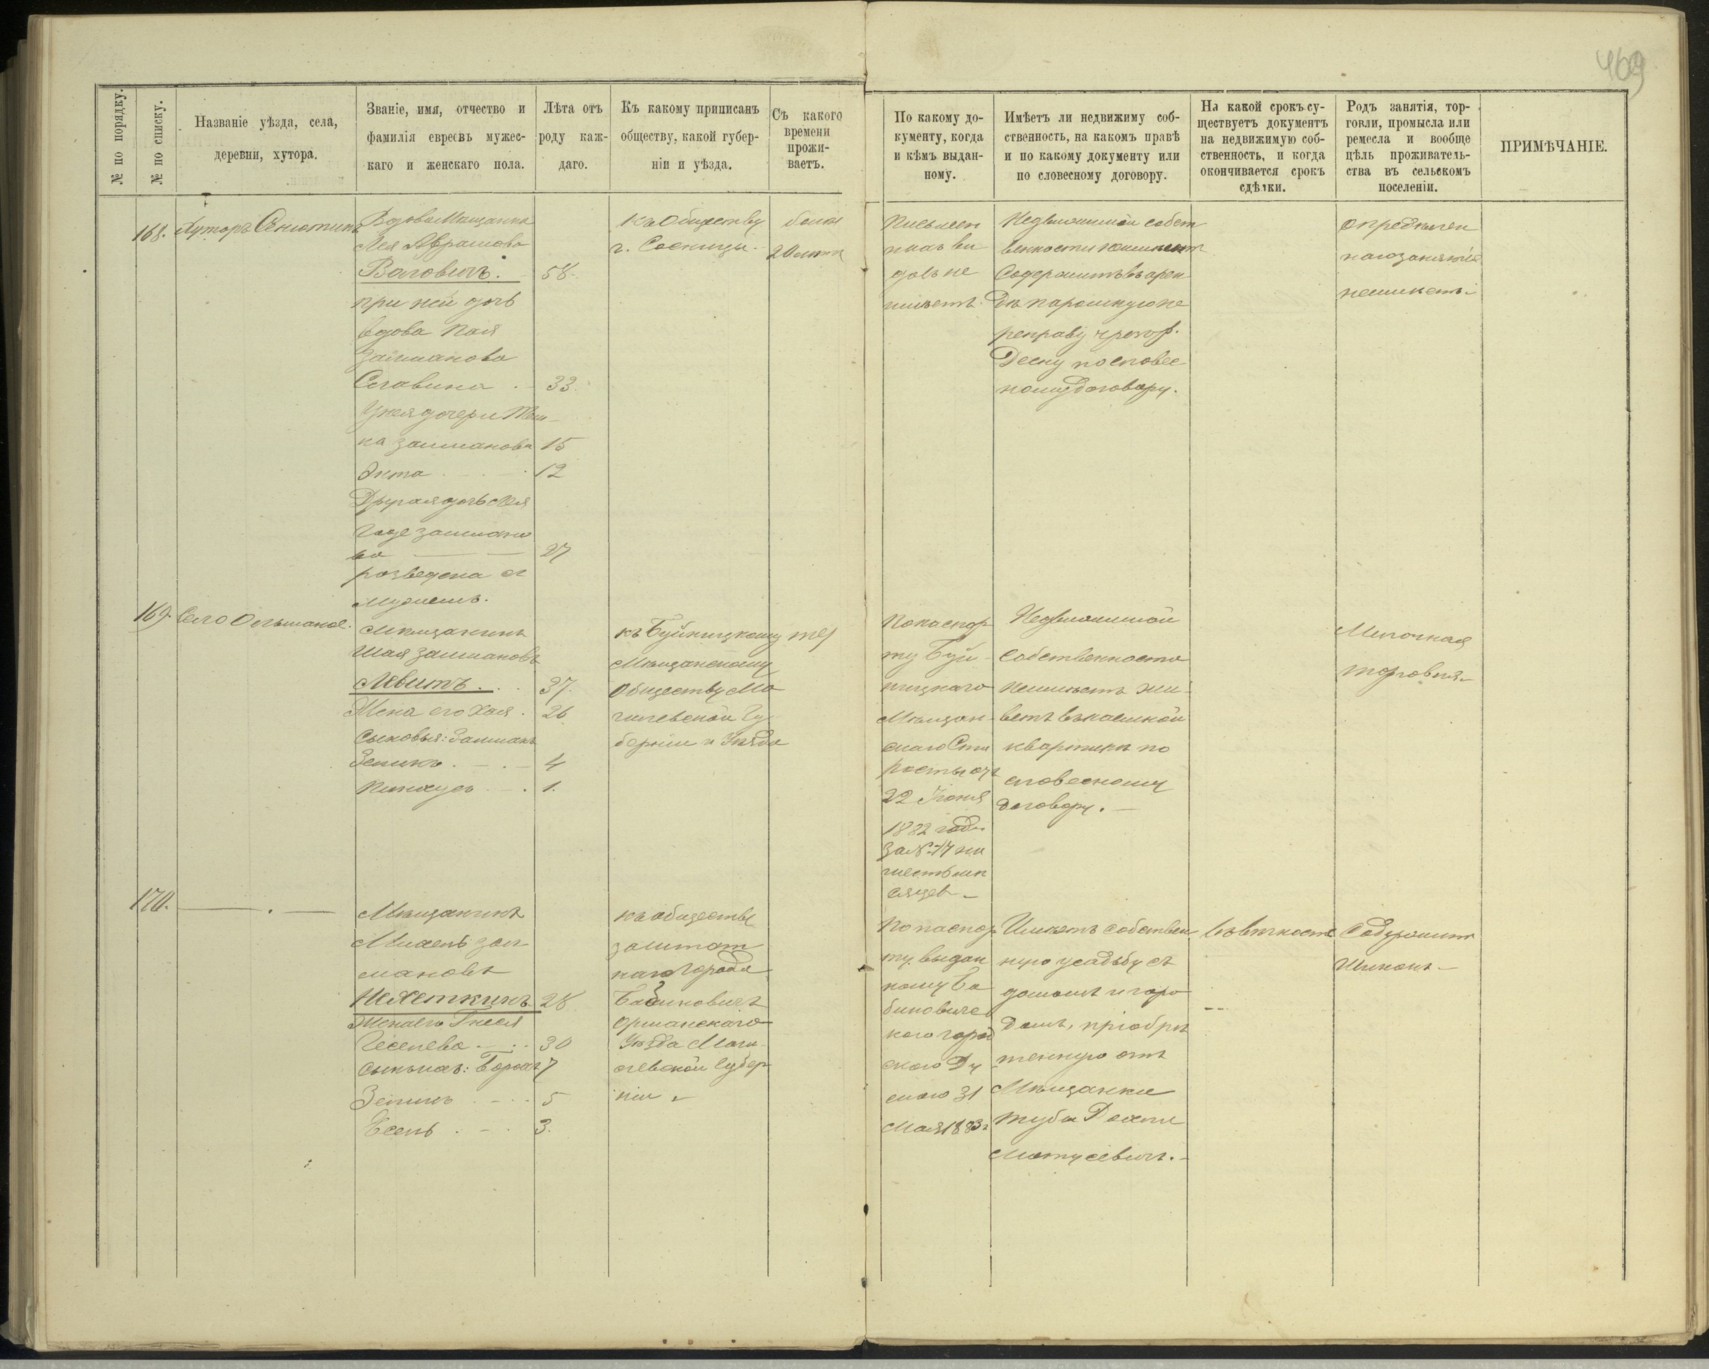 469
№ по порядку.
№ по списку.
Названіе уѣзда, села,
деревни, хутора.
Званіе, имя, отчество и
фамилія евреевъ мужес-
каго и женскаго пола.
Лѣта отъ
роду каж-
даго.
Къ какому приписанъ
обществу, какой губер-
ніи и уѣзда.
Съ какого
времени
прожи-
ваетъ.
По какому до-
кументу, когда
и кѣмъ выдан-
ному.
Имѣетъ ли недвижиму соб-
ственность, на какомъ правѣ
и по какому документу или
по словесному договору.
На какой срокъ су-
ществуетъ документъ
на недвижимую соб-
ственность, и когда
окончивается срокъ
сдѣлки.
Родъ занятія, тор-
говли, промысла или
ремесла и вообще
цѣль проживатель-
ства въ сельскомъ
поселеніи.
ПРИМѢЧАНІЕ.
168.
Хуторъ
Вдова Мѣщанка
Лея Абрамова
58.
при ней дочь
вдова
Залманова
Славина . 33.
Залманова 15
12
Другая дочь
Залмано
ва — — 27
розведена съ
мужемъ.
Къ Обществу
г. Сосницы.
более
20 лѣтъ
Письмен
наго ви
да не
имѣетъ
Недвижимой собст
венности неимѣетъ
Содержитъ въ арен
дѣ паромную пе
реправу чрезъ р.
Десну по словес
ному договору.
опредѣлен
наго занятія
неимѣетъ.
169.
Село Ольшаное.
Мѣщанинъ
Шая Залмановъ
Левитъ. . . 37.
Жена его Хая . 26
Сыновья: Залманъ
4
Пинхусъ — . 1.
къ Буйницкому
Мѣщанскому
Обществу Мо
гилевской Гу
берніи и Уѣзда
По паспор
ту Буй
ницкаго
Мѣщан
скаго Ста
росты отъ
22 Іюня
шесть мѣ
сяцевъ
Недвижимой
собственности
неимѣетъ жи
ветъ въ наемной
квартирѣ по
словесному
договору. —
Мелочная
торговля.
170.
— . —
Мѣщанинъ
Зал
мановъ
28
Жена его
30
сыновья: 7
5
3.
къ обществу
заштат
наго города
Бабиновичъ
Оршанскаго
Уѣзда Моги
левской Губер
ніи
По паспор
ту выдан
ному Ба
биновичс
кого город
31
Мая 1883 г
Имѣетъ собствен
ную усадьбу съ
домомъ и горо
домъ, пріобрѣ
тенную отъ
Мѣщанки
Матусевичъ. —
въ вѣчность
Содержитъ
Шинокъ —